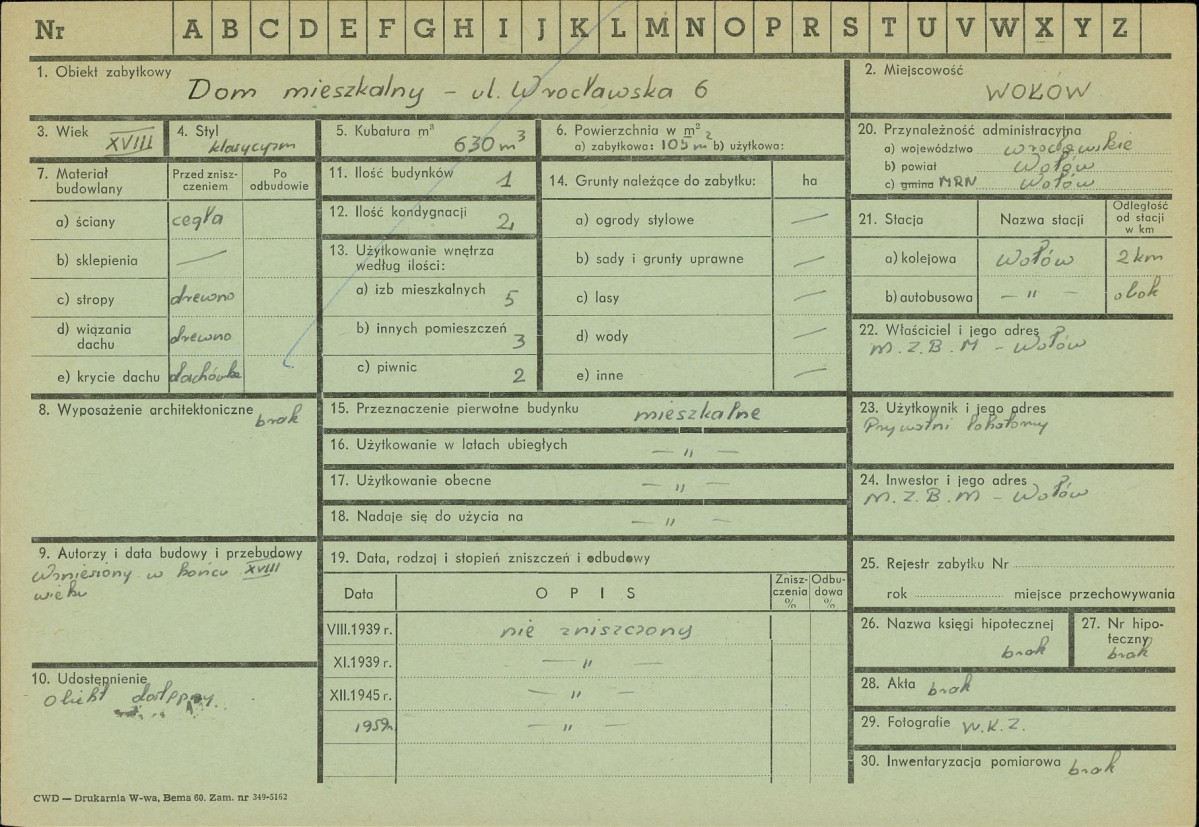 Nr A B C D E F G H I J K L M N O P R S T U V W X Y Z
1. Obiekt zabytkowy
Dom mieszkalny – ul. Wrocławska 6
2. Miejscowość
WOŁÓW
3. Wiek
XVIII
4. Styl
klasycyzm
5. Kubatura m³
630 m³
6. Powierzchnia w m²
a) zabytkowa: 105 m² b) użytkowa:
7. Materiał budowlany
Przed zniszczeniem
Po odbudowie
a) ściany cegła
b) sklepienia —
c) stropy drewno
d) wiązania dachu drewno
e) krycie dachu dachówka
8. Wyposażenie architektoniczne brak
9. Autorzy i data budowy i przebudowy
Wzniesiony w końcu XVIII
wieku
10. Udostępnienie
obiekt dostępny
11. Ilość budynków 1
12. Ilość kondygnacji 2
13. Użytkowanie wnętrza
według ilości:
a) izb mieszkalnych 5
b) innych pomieszczeń 3
c) piwnic 2
14. Grunty należące do zabytku: ha
a) ogrody stylowe —
b) sady i grunty uprawne —
c) lasy —
d) wody —
e) inne —
15. Przeznaczenie pierwotne budynku mieszkalne
16. Użytkowanie w latach ubiegłych — " —
17. Użytkowanie obecne — " —
18. Nadaje się do użycia na — " —
19. Data, rodzaj i stopień zniszczeń i odbudowy
Data OPIS Zniszczenia % Odbudowa %
VIII.1939 r. nie zniszczony
XI.1939 r. — " —
XII.1945 r. — " —
1959r. — " —
20. Przynależność administracyjna
a) województwo wrocławskie
b) powiat Wołów
c) gmina MRN Wołów
21. Stacja Nazwa stacji Odległość od stacji w km
a) kolejowa Wołów 2 km
b) autobusowa — " — obok
22. Właściciel i jego adres
M.Z.B.M – Wołów
23. Użytkownik i jego adres
Prywatni lokatorzy
24. Inwestor i jego adres
M.Z.B.M – Wołów
25. Rejestr zabytku Nr
rok miejsce przechowywania
26. Nazwa księgi hipotecznej
brak
27. Nr hipoteczny
brak
28. Akta brak
29. Fotografie W.K.Z.
30. Inwentaryzacja pomiarowa brak
CWD — Drukarnia W-wa, Bema 60. Zam. nr 349-5162